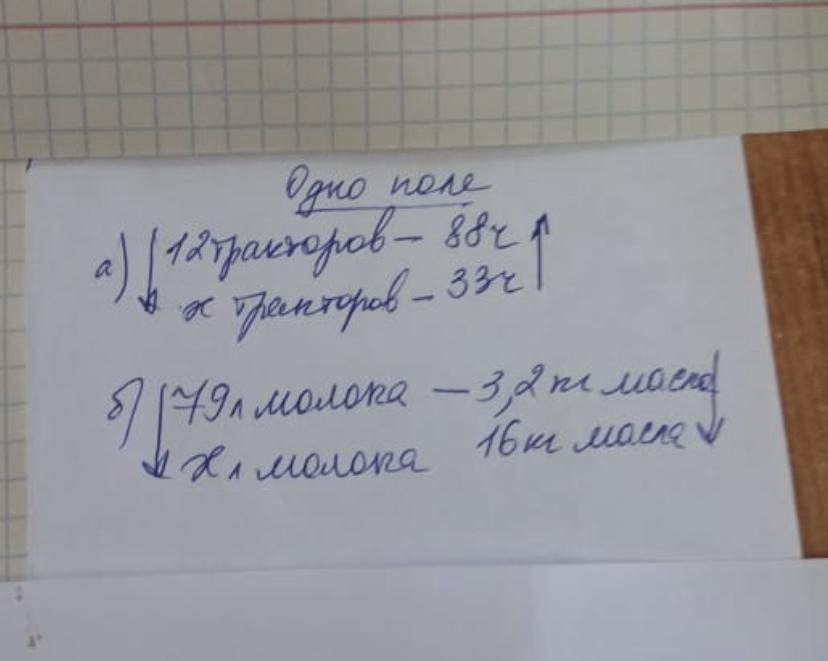 Одно поле
а) 12 тракторов – 88ч
х тракторов – 33ч
б) 79 л молока – 3,2 кг масла
х л молока 16 кг масла